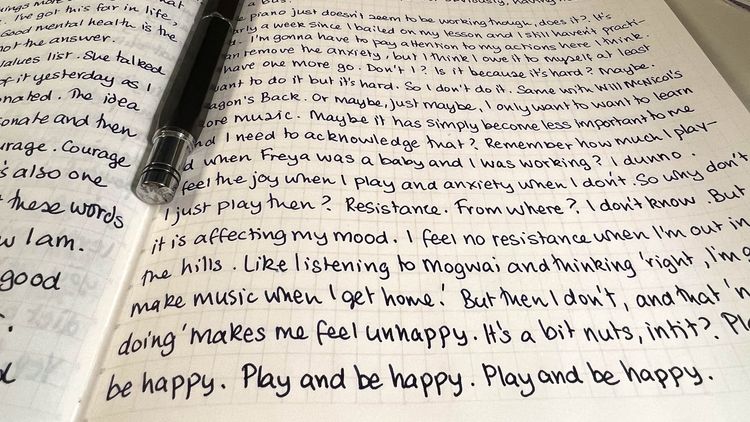 ings more
I've got this far in life,
Good mental health is the
not the answer.
values list. She talked
of it yesterday as I
onated. The idea
onate and then
urage. Courage
s also one
these words
w I am.
good
a bad.
piano just doesn't seem to be working though, does it? It's
arly a week since I bailed on my lesson and I still haven't practi-
d. I'm gonna have to pay attention to my actions here I think.
an remove the anxiety, but I think I owe it to myself at least
have one more go. Don't I? Is it because it's hard? Maybe.
want to do it but it's hard. So I don't do it. Same with Will McNicol's
agon's Back. Or maybe, just maybe, I only want to want to learn
ore music. Maybe it has simply become less important to me
nd I need to acknowledge that? Remember how much I play-
d when Freya was a baby and I was working? I dunno.
feel the joy when I play and anxiety when I don't. So why don't
I just play then? Resistance. From where? I don't know. But
it is affecting my mood. I feel no resistance when I'm out in
the hills. Like listening to Mogwai and thinking 'right, I'm g
make music when I get home.' But then I don't, and that 'n
doing' makes me feel unhappy. It's a bit nuts, intit? Pl
be happy. Play and be happy. Play and be happy.